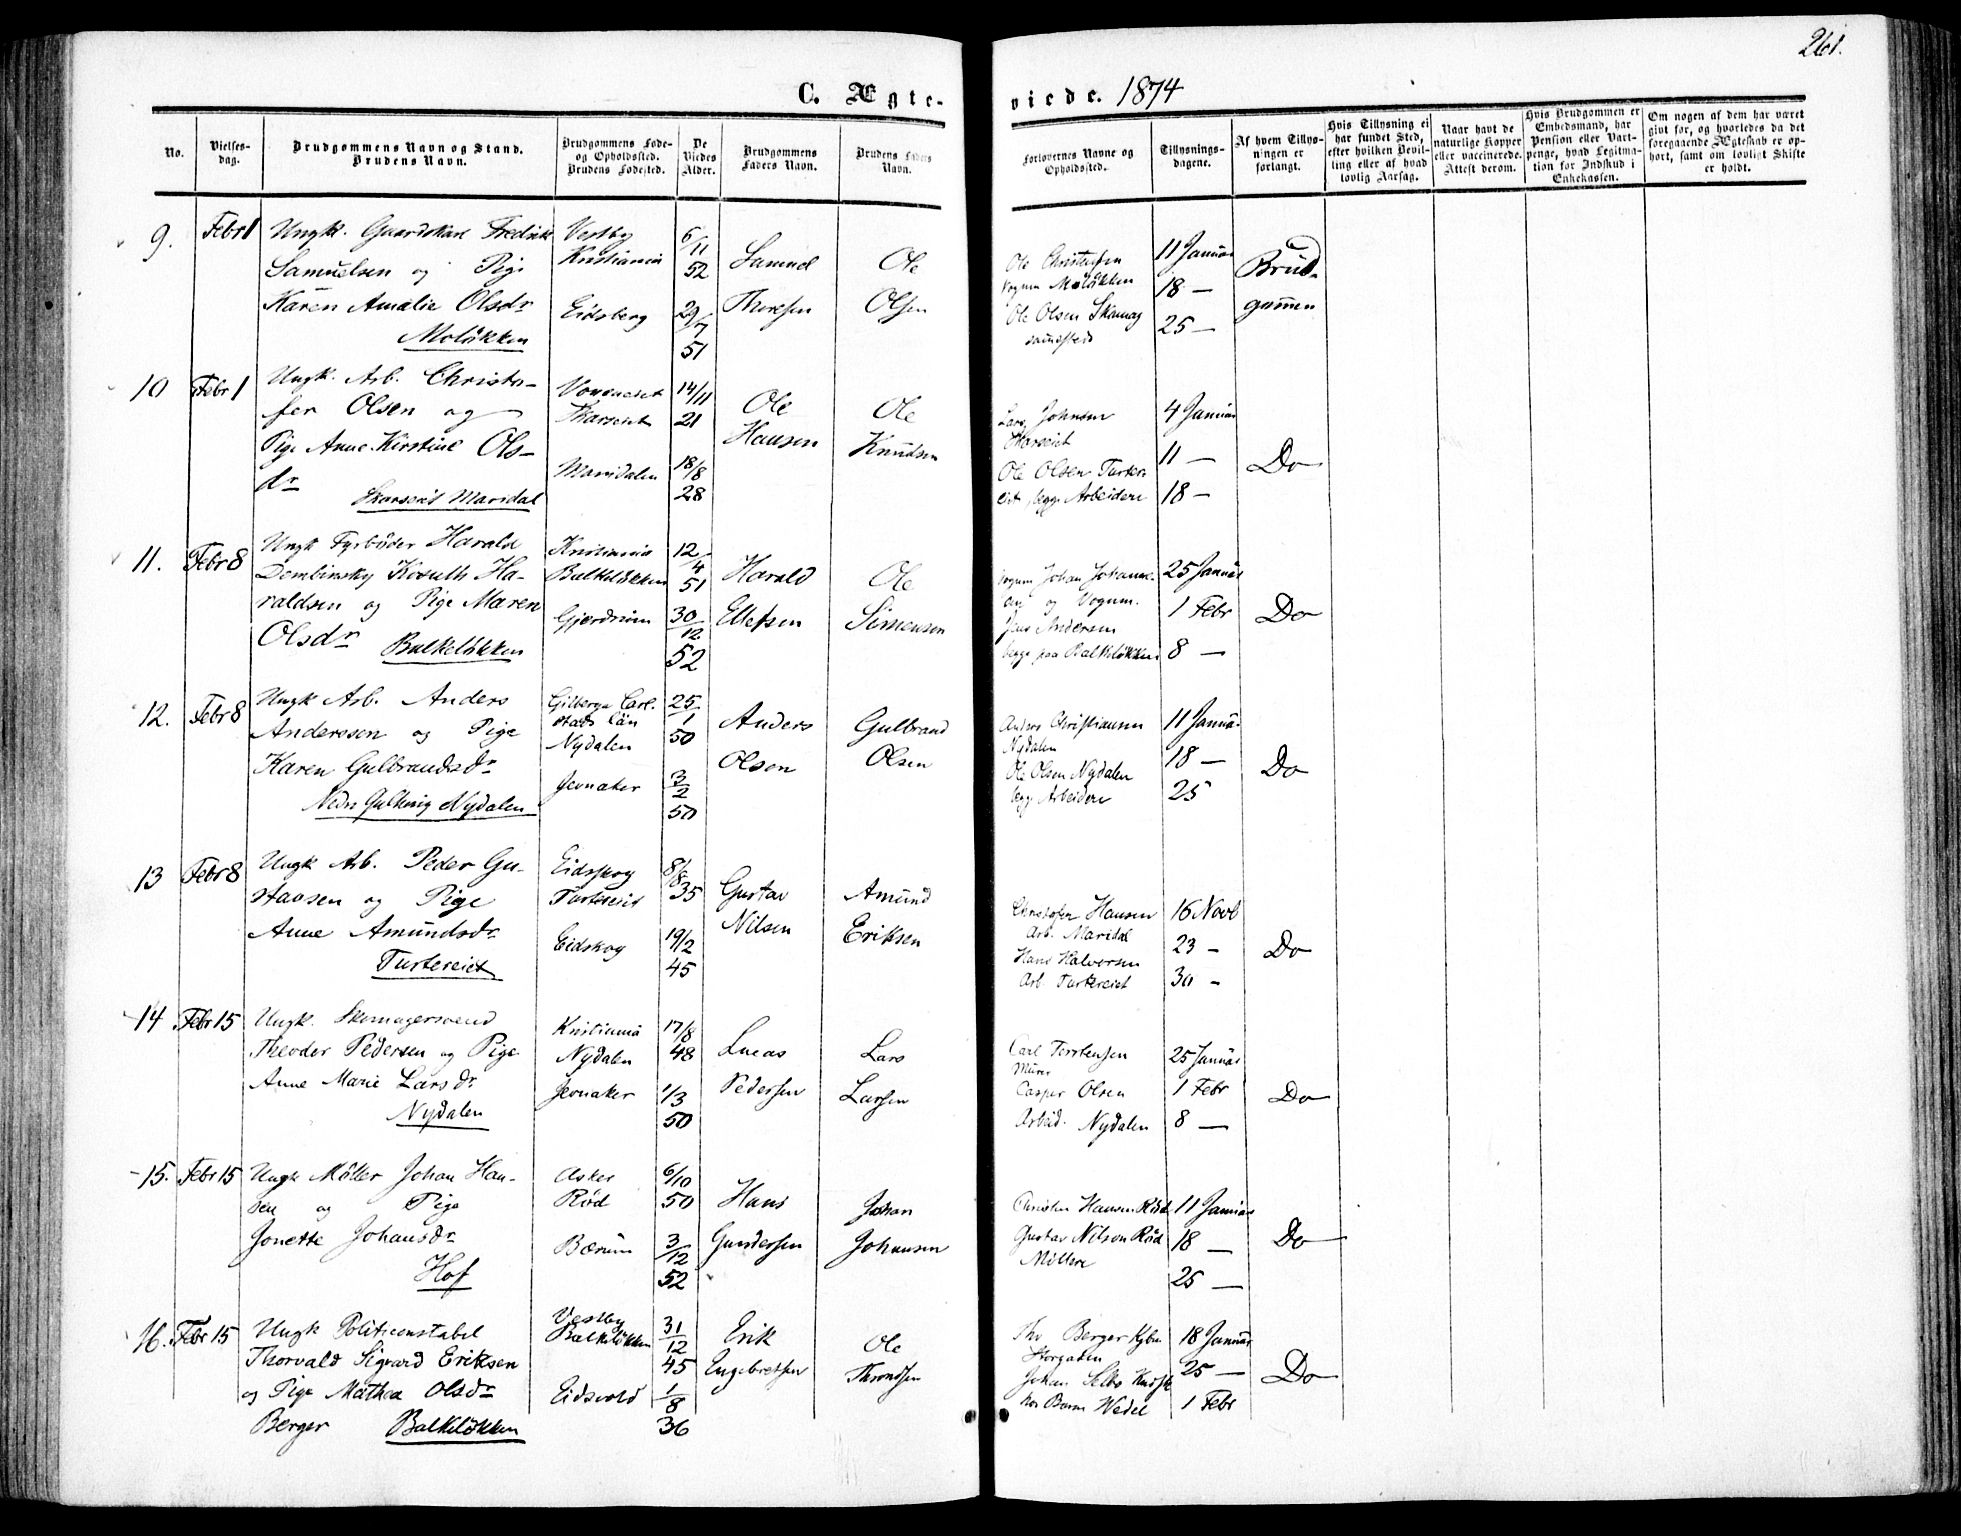 261.
C. Ægteviede. 1874
No.
Vielsesdag.
Brudgommens Navn og Stand.
Brudens Navn.
Brudgommens Føde-
og Opholdssted.
Brudens Fødested.
De
Viedes
Alder.
Brudgommens
Faders Navn.
Brudens Faders
Navn.
Forlovernes Navne og
Opholdssted.
Tillysnings-
dagene.
Af hvem Tillys-
ningen er
forlangt.
Hvis Tillysning ei
har fundet Sted,
efter hvilken Bevil-
ling eller af hvad
lovlig Aarsag.
Naar havt de
naturlige Kopper
eller vaccinerede.
Attest derom.
Hvis Brudgommen er
Embedsmand, har
Pension eller Vart-
penge, hvad Legitima-
tion for Indskud i
Enkekassen.
Om nogen af dem har været
gift før, og hvorledes da det
foregaaende Ægteskab er op-
hørt, samt om lovligt Skifte
er holdt.
9.
Febr 1
Ungk. Gaardskarl Fredrik
Samuelsen og Pige
Karen Amalie Olsdr
Moløkken
Vestby
Kristiania
Eidsberg
6/11
52
29/7
51
Samuel
Thoresen
Ole
Olsen
Ole Christensen
Vognm Moløkken
Ole Olsen Skomag
samesteds
11 Januar
18 —
25 —
Brud-
gommen
10
Febr 1
Ungk. Arb. Christo-
fer Olsen og
Pige Anne Kirstine Ols-
dr
Skarseiet Maridal
Skarseiet
Maridalen
14/11
21
18/8
28
Ole
Hansen
Ole
Knudsen
Lars Johnsen
Skarseiet
Ole Olsen Turter-
eiet, begge Arbeidere
4 Januar
11 —
18 —
Do
11.
Febr 8
Ungk Fyrbøder Harald
Dembinsky Kosuth Ha-
raldsen og Pige Maren
Olsdr Balkeløkken
Kristiania
Balkeløkken
Gjerdrum
12/4
51
30/12
52
Harald
Ellefsen
Ole
Simensen
Vognm Johan Johanne-
og Vognm.
Jens Andersen
begge paa Balkeløkken
25 Januar
1 Febr
8 —
Do
12.
Febr 8
Ungk Arb. Anders
Anderssen og Pige
Karen Gulbrandsdr
Nydalen
Gilberga Carl-
stads Län
Nydalen
Jevnaker
25/1
50
3/2
50
Anders
Olsen
Gulbrand
Olsen
Anders Christiansen
Nydalen
Ole Olsen Nydalen
begge Arbeidere
11 Januar
18 —
25
Do
13
Febr 8
Ungk Arb. Peder Gu-
stavsen og Pige
Anne Amundsdr
Turtereiet
Eidsskog
Turtereiet
Eidskog
8/8
35
19/2
45
Gustav
Nilsen
Amund
Eriksen
Christofer Hansen
Arb. Maridal
Hans Halvorsen
Arb. Turtereiet
16 Novb
23 —
30 —
Do
14
Febr 15
Ungk. Skomagersvend
Theodor Pedersen og Pige
Anne Marie Larsdr
Nydalen
Kristiania
Nydalen
Jevnaker
17/8
48
1/3
50
Lucas
Pedersen
Lars
Larsen
Carl Torstensen
Murer
Casper Olsen
Arbeid. Nydalen
25 Januar
1 Febr
8 —
Do
15.
Febr 15
Ungk Møller Johan Han-
sen og Pige
Jonette Johansdr
Hof
Asker
Rød
Bærum
6/10
50
3/12
52
Hans
Gundersen
Johan
Johansen
Christen Hansen Rød
Gustav Nilson Rød
Møllere
11 Januar
18 —
25 —
Do
16.
Febr 15
Ungk Politiconstabel
Thorvald Sigvard Eriksen
og Pige Mathea Olsdr
Berger Balkeløkken
Vestby
Balkeløkken
Eidsvold
31/12
45
1/8
36
Erik
Engebretsen
Ole
Throndsen
Berger
Storgaden
Johan Selbo
hos Baron Wedel
18 Januar
25 —
1 Febr
Do